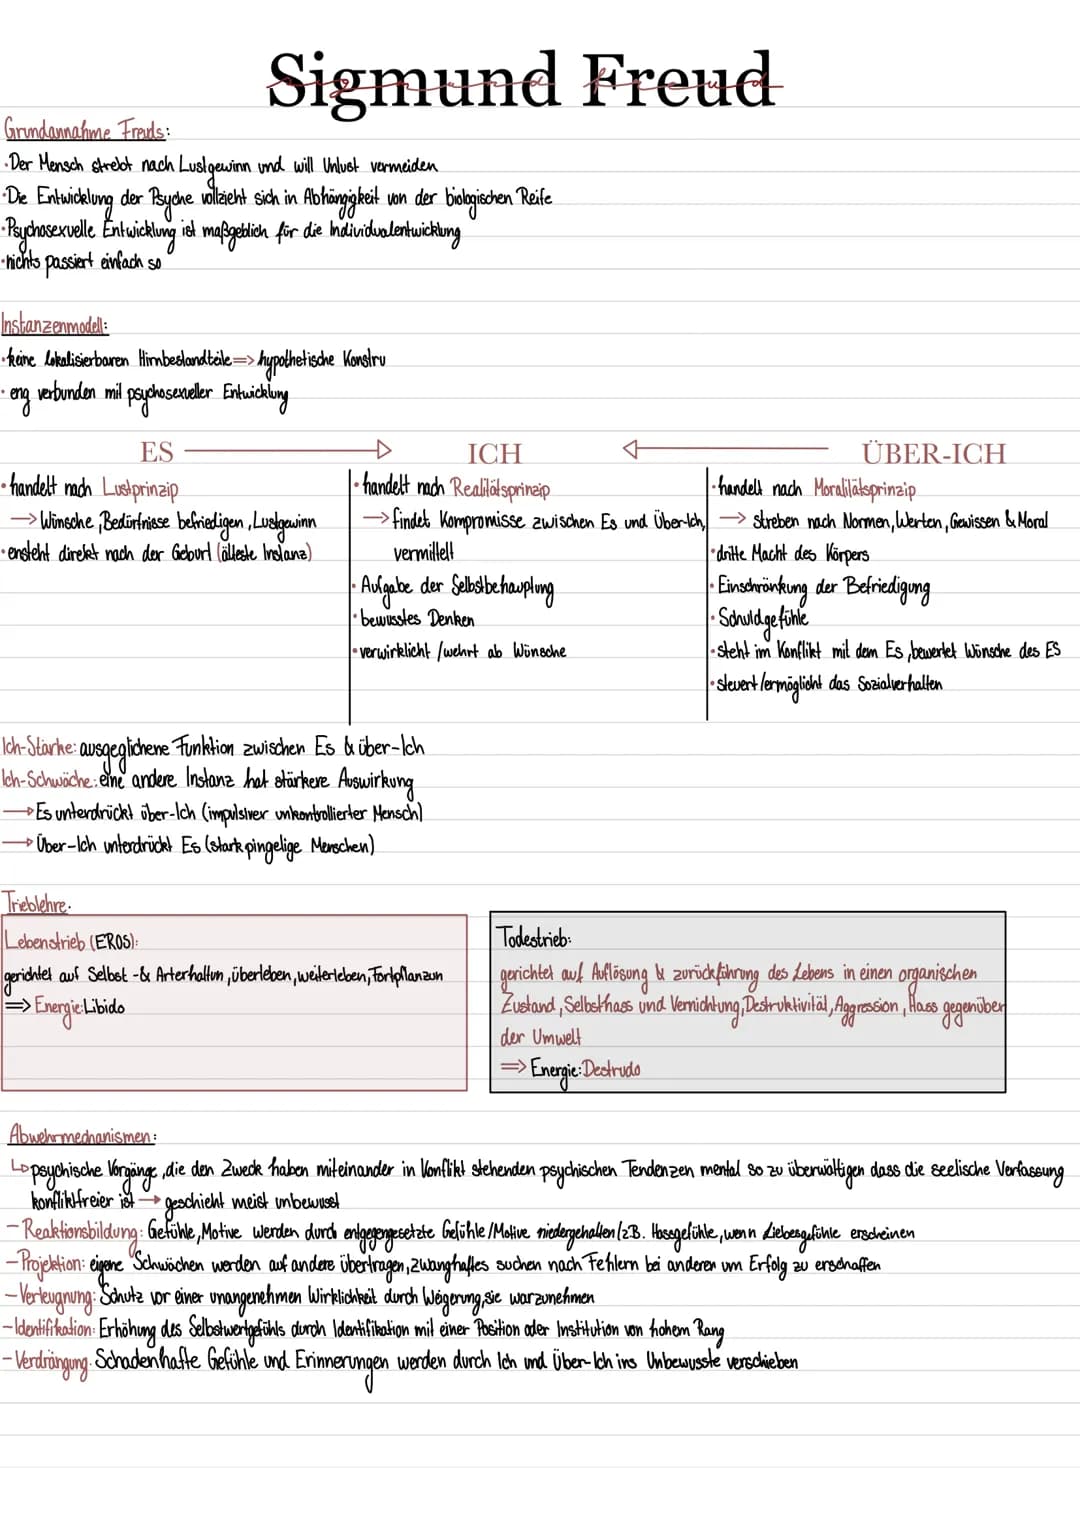 Sigmund Freud
Grundannahme Freuds:
·Der Mensch strebt nach Lustgewinn und will Unlust vermeiden
·Die Entwicklung der Psyche vollzieht sich in Abhängigkeit von der biologischen Reife
·Psychosexuelle Entwicklung ist maßgeblich für die Individualentwicklung
·nichts passiert einfach so
Instanzenmodell:
·keine lokalisierbaren Hirnbestandteile => hypothetische Konstru
· eng verbunden mit psychosexueller Entwicklung
ES → ICH ← ÜBER-ICH
·handelt nach Lustprinzip
→ Wünsche, Bedürfnisse befriedigen, Lustgewinn
·ensteht direkt nach der Geburt (älteste Instanz)
·handelt nach Realitätsprinzip
→ findet Kompromisse zwischen Es und Über-Ich,
vermittelt
· Aufgabe der Selbstbehauptung
·bewusstes Denken
·verwirklicht / wehrt ab Wünsche
·handelt nach Moralitätsprinzip
→ streben nach Normen, Werten, Gewissen & Moral
·dritte Macht des Körpers
· Einschränkung der Befriedigung
· Schuldgefühle
·steht im Konflikt mit dem Es, bewertet Wünsche des ES
·steuert/ermöglicht das Sozialverhalten
Ich-Stärke: ausgeglichene Funktion zwischen Es & über-Ich
Ich-Schwäche: eine andere Instanz hat stärkere Auswirkung
→ Es unterdrückt über-Ich (impulsiver unkontrollierter Mensch)
→ Über-Ich unterdrückt Es (stark pingelige Menschen)
Trieblehre:
Lebenstrieb (EROS):
gerichtet auf Selbst -& Arterhaltun, überleben, weiterleben, Fortpflanzun
=> Energie: Libido
Todestrieb:
gerichtet auf Auflösung & zurückführung des Lebens in einen organischen
Zustand, Selbsthass und Vernichtung, Destruktivität, Aggression, Hass gegenüber
der Umwelt
=> Energie: Destrudo
Abwehrmechanismen:
↳ psychische Vorgänge, die den Zweck haben miteinander in Konflikt stehenden psychischen Tendenzen mental so zu überwältigen dass die seelische Verfassung
konfliktfreier ist → geschieht meist unbewusst
- Reaktionsbildung: Gefühle, Motive werden durch entgegengesetzte Gefühle/Motive niedergehalten (z.B. Hassgefühle, wenn Liebesgefühle erscheinen
- Projektion: eigene Schwächen werden auf andere übertragen, zwanghaftes suchen nach Fehlern bei anderen um Erfolg zu erschaffen
- Verleugnung: Schutz vor einer unangenehmen Wirklichkeit durch Weigerung, sie warzunehmen
- Identifikation: Erhöhung des Selbstwertgefühls durch Identifikation mit einer Position oder Institution von hohem Rang
- Verdrängung: Schadenhafte Gefühle und Erinnerungen werden durch Ich und Über-Ich ins Unbewusste verschieben